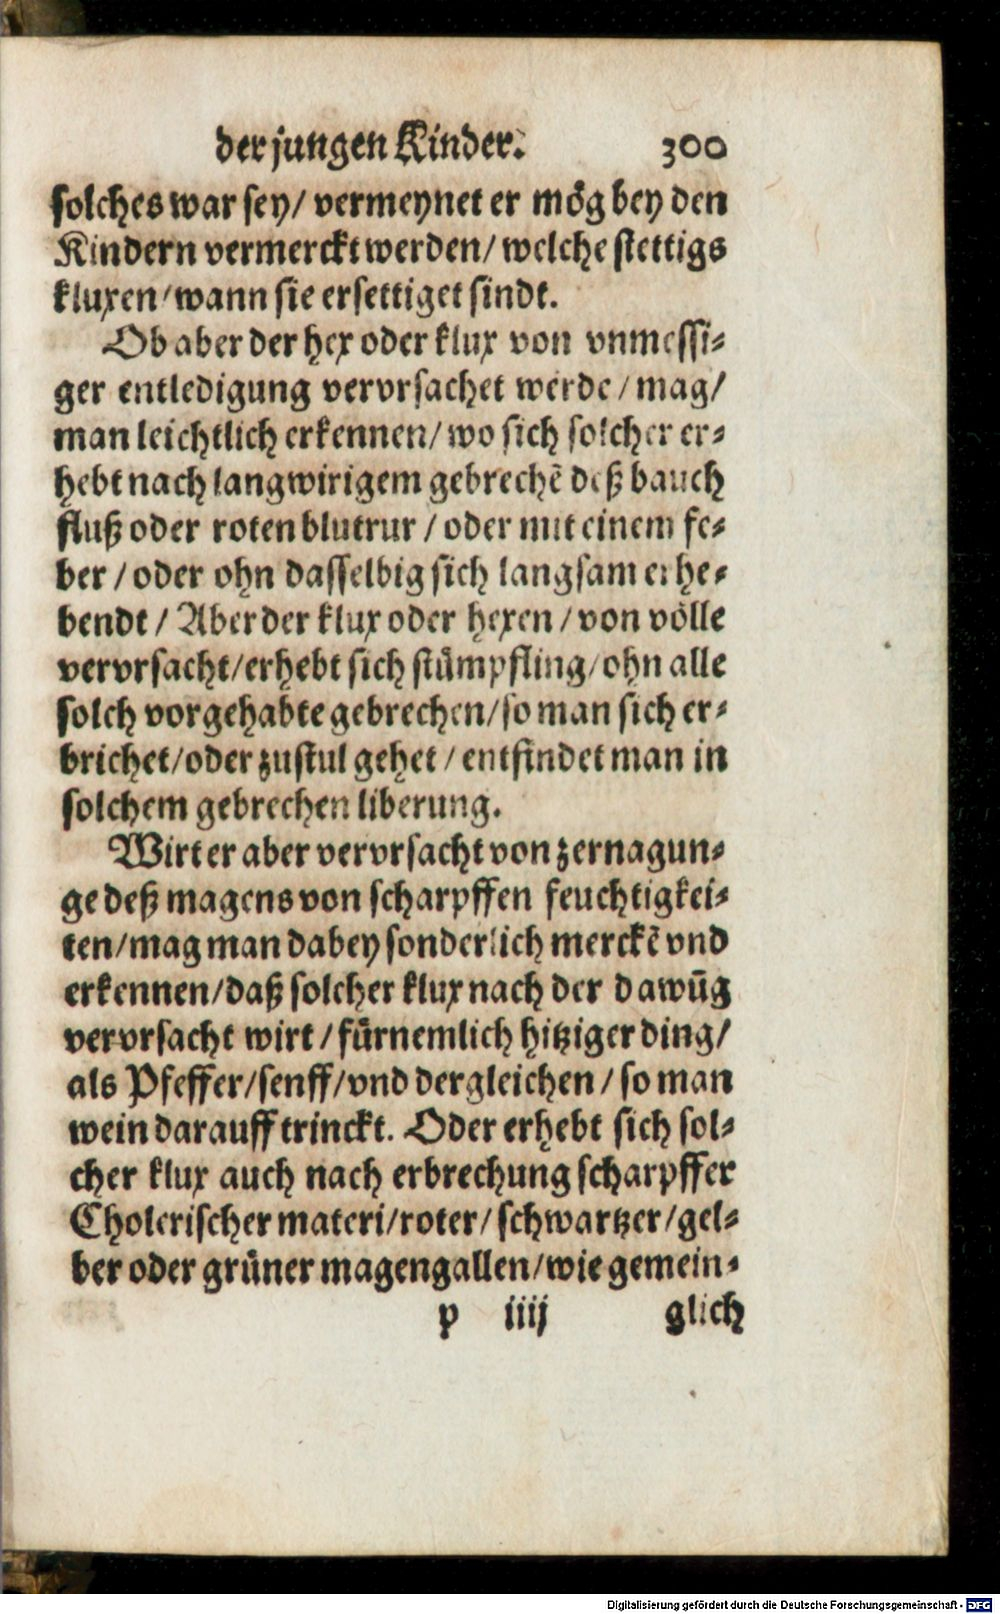 der jungen Kinder. 300
solches war sey/ vermeynet er mög bey den
Kindern vermerckt werden/ welche stettigs
kluxen/ wann sie ersettiget sindt.
Ob aber der hex oder klux von vnmessi-
ger entledigung vervrsachet werde/ mag/
man leichtlich erkennen/ wo sich solcher er-
hebt nach langwirigem gebrechẽ deß bauch
fluß oder roten blutrur/ oder mit einem fe-
ber/ oder ohn dasselbig sich langsam erhe-
bendt/ Aber der klux oder hexen/ von völle
vervrsacht/ erhebt sich stümpfling/ ohn alle
solch vorgehabte gebrechen/ so man sich er-
brichet/ oder zustul gehet/ entfindet man in
solchem gebrechen liberung.
Wirt er aber vervrsacht von zernagun-
ge deß magens von scharpffen feuchtigkei-
ten/ mag man dabey sonderlich merckẽ vnd
erkennen/ daß solcher klux nach der dawũg
vervrsacht wirt/ fürnemlich hitziger ding/
als Pfeffer/ senff/ vnd dergleichen/ so man
wein darauff trinckt. Oder erhebt sich sol-
cher klux auch nach erbrechung scharpffer
Cholerischer materi/ roter/ schwartzer/ gel-
ber oder grüner magengallen/ wie gemein-
p iiij glich
Digitalisierung gefördert durch die Deutsche Forschungsgemeinschaft - DFG